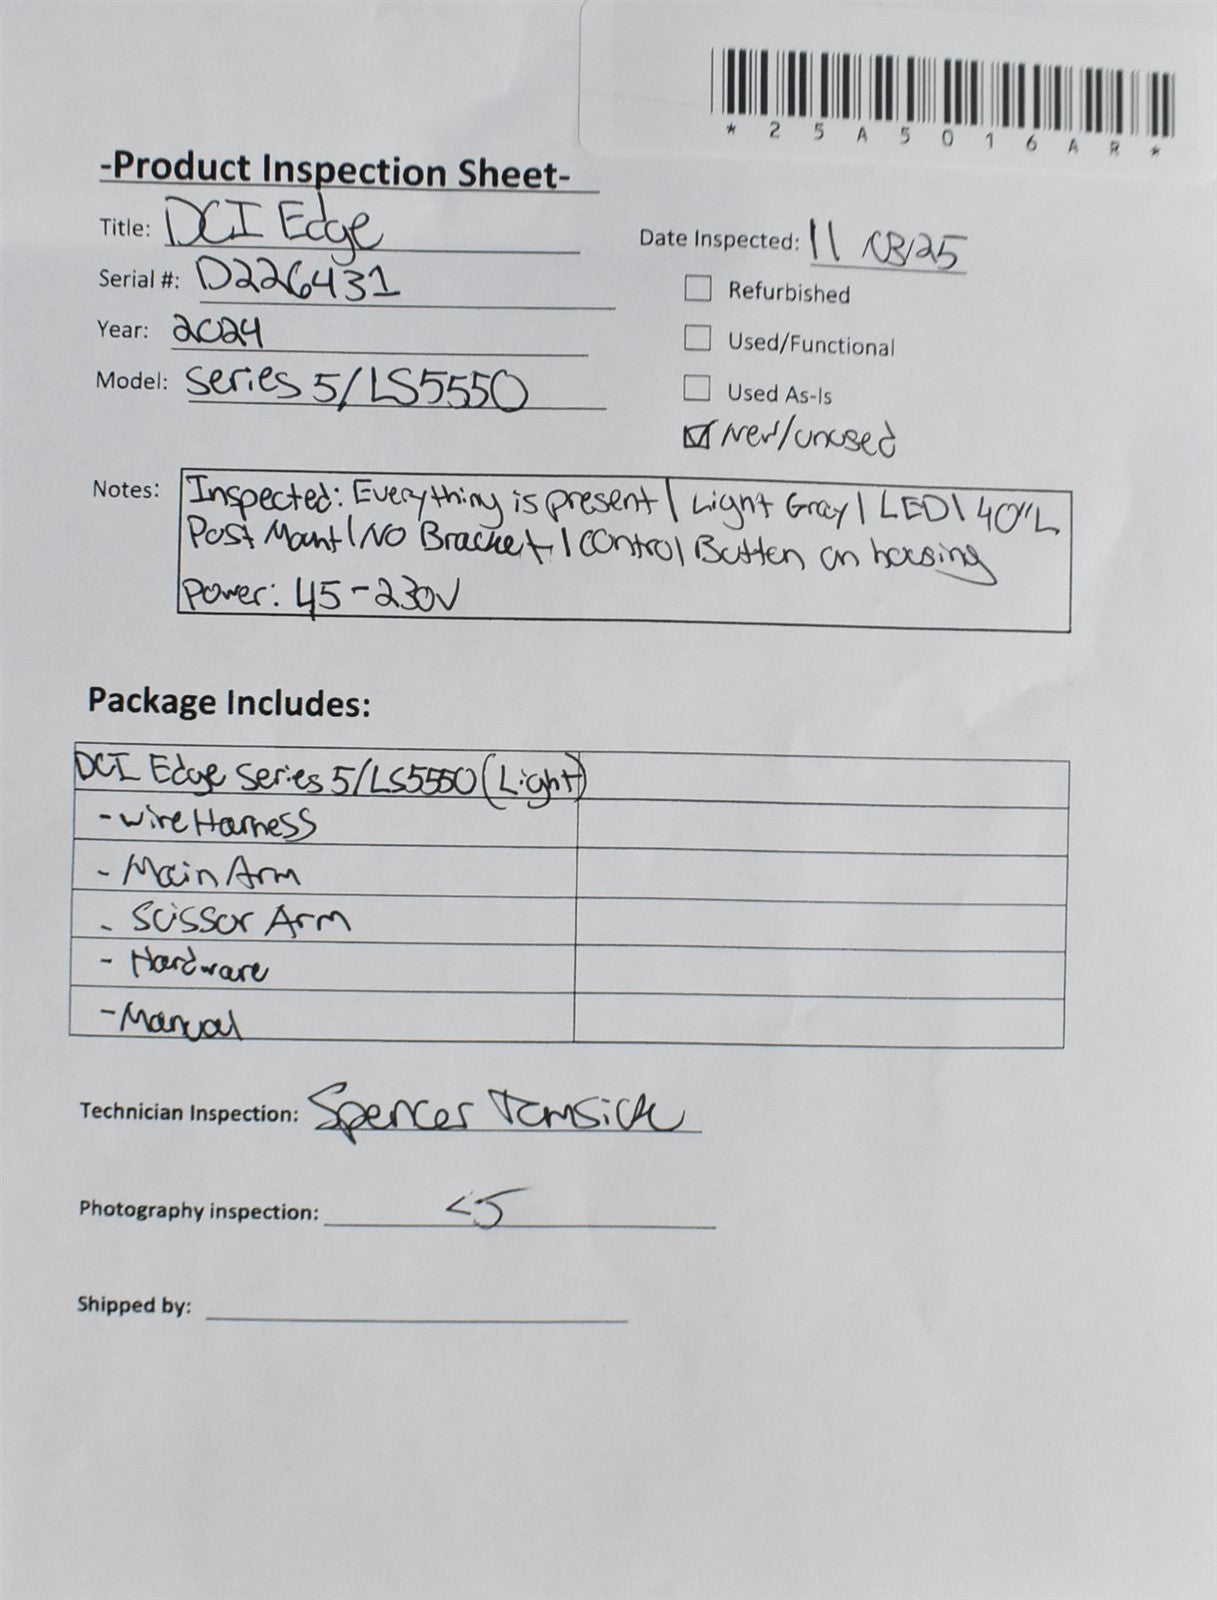 *25A5016AR*
-Product Inspection Sheet-
Title: DCI Edge
Date Inspected: 11/03/25
Serial #: D226431
Refurbished
Year: 2024
Used/Functional
Model: Series 5/LS5550
Used As-Is
New/unused
Notes: Inspected: Everything is present | Light Gray | LED | 40"L
Post Mount | NO Bracket | Control Button on housing
Power: 45-230V
Package Includes:
DCI Edge Series 5/LS5550 (Light)
- wire Harness
- Main Arm
- Scissor Arm
- Hardware
- Manual
Technician Inspection: Spencer
Photography inspection:
Shipped by: